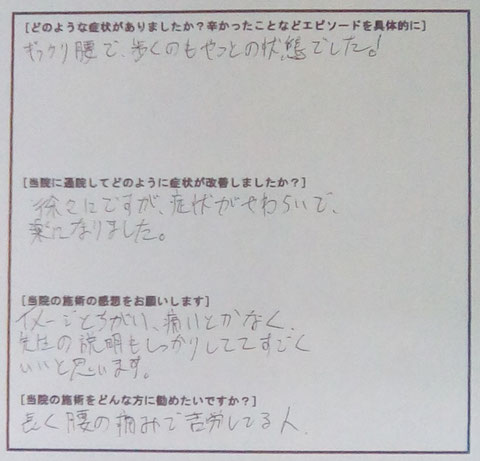 [どのような症状がありましたか？辛かったことなどエピソードを具体的に]
ギックリ腰で、歩くのもやっとの状態でした。!
[当院に通院してどのように症状が改善しましたか？]
徐々にですが、症状がやわらいで、
楽になりました。
[当院の施術の感想をお願いします]
イメージとちがい、痛いとかなく、
先生の説明もしっかりしててすごく
いいと思います。
[当院の施術をどんな方に勧めたいですか？]
長く腰の痛みで苦労してる人.